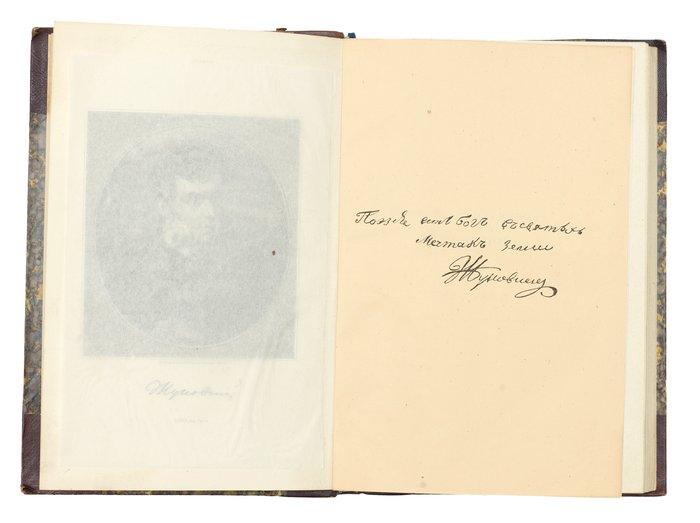 Жуковскій
Поэзія есть Богъ въ святыхъ
Мечтахъ Земли
Жуковскій